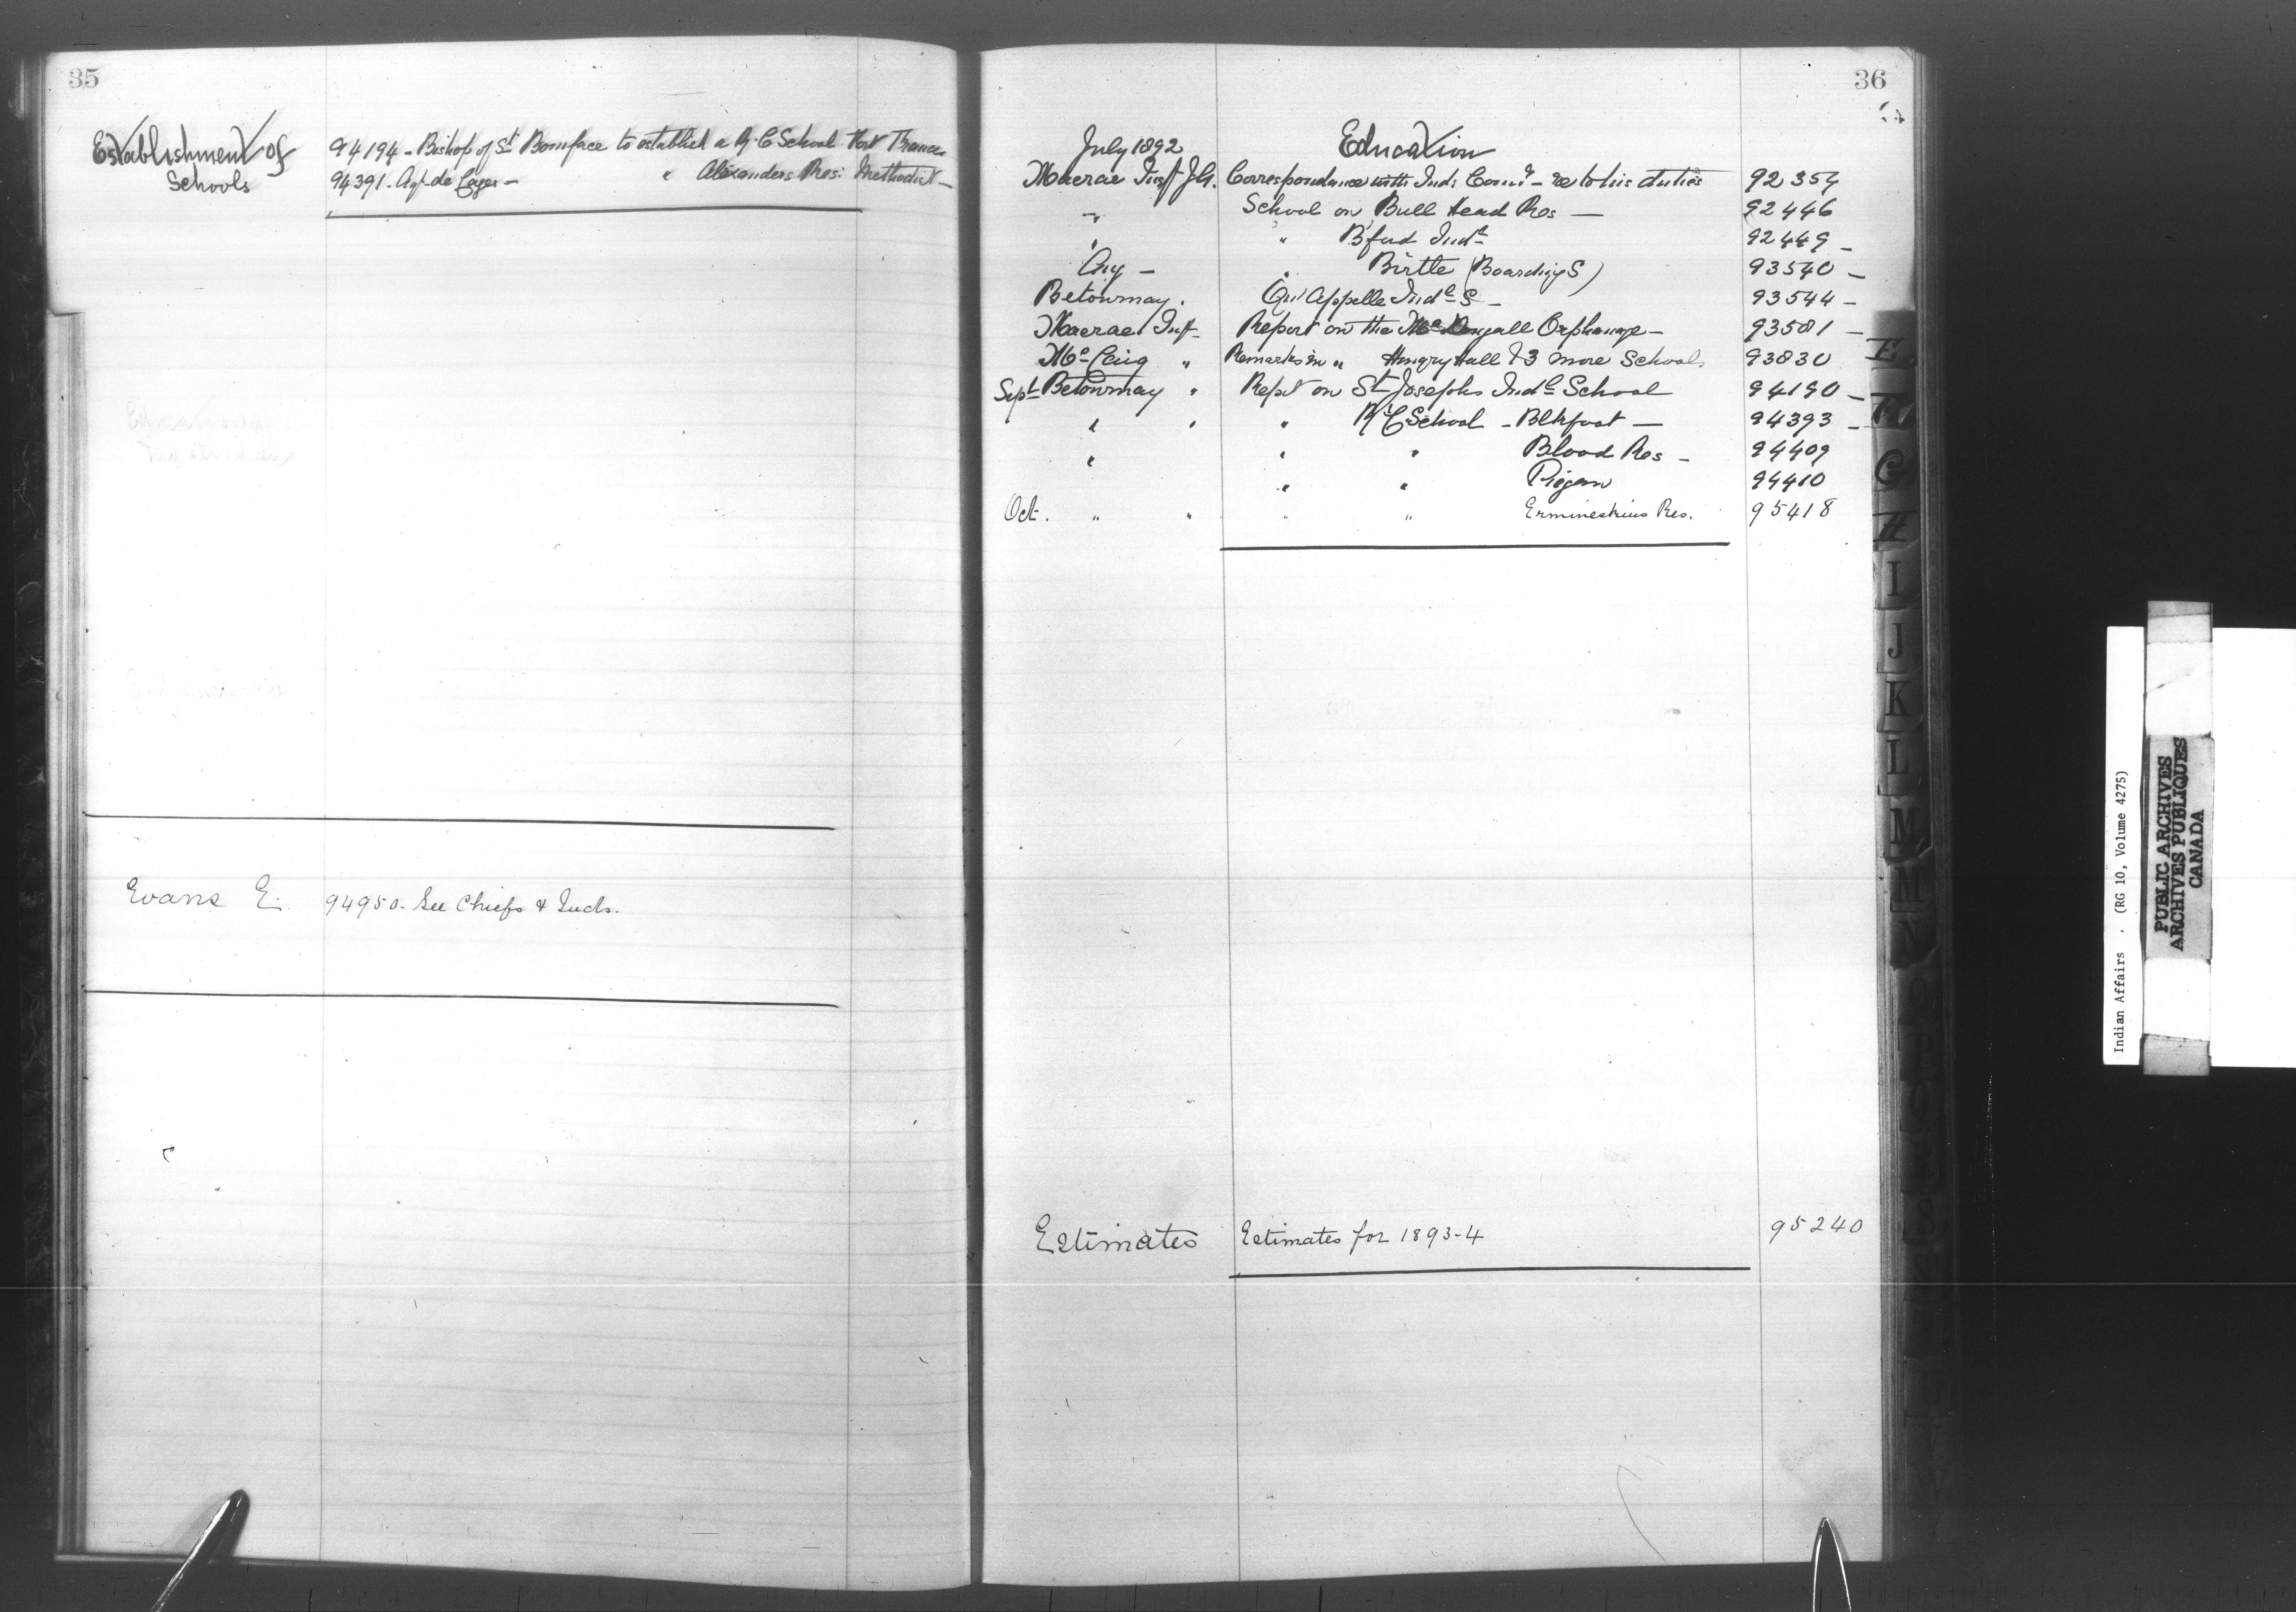 35
Establishment of
Schools
94194 - Bishop of St Boniface to establish a R.C School Fort Frances
94391. Agt de Cazes - " Alexanders Res: Methodist -
Evans E. 94950. See Chiefs & Inds.
36
July 1892 Education
Macrae Insp J.A. Correspondence with Ind: Comr - re to his duties 92354
" School on Bull Head Res - 92446
" " B'ford Indl 92449 -
" Birtle (Boarding S) 93540 -
Betournay. Qu'Appelle Indl S - 93544 -
Macrae Insp Report on the McDougall Orphanage - 93581 -
McCaig " Remarks in " Hungry Hall & 3 more Schools 93830
Sept Betournay " Rept on St Josephs Indl School 94190 -
" " " R.C School - Blkfoot - 94393 -
" " " Blood Res - 94409
" " Piegan 94410
Oct. " " " " Ermineskins Res. 95418
Estimates Estimates for 1893-4 95240
E
F
G
H
I
J
K
L
M
M
N
Indian Affairs . (RG 10, Volume 4275)
PUBLIC ARCHIVES
ARCHIVES PUBLIQUES
CANADA